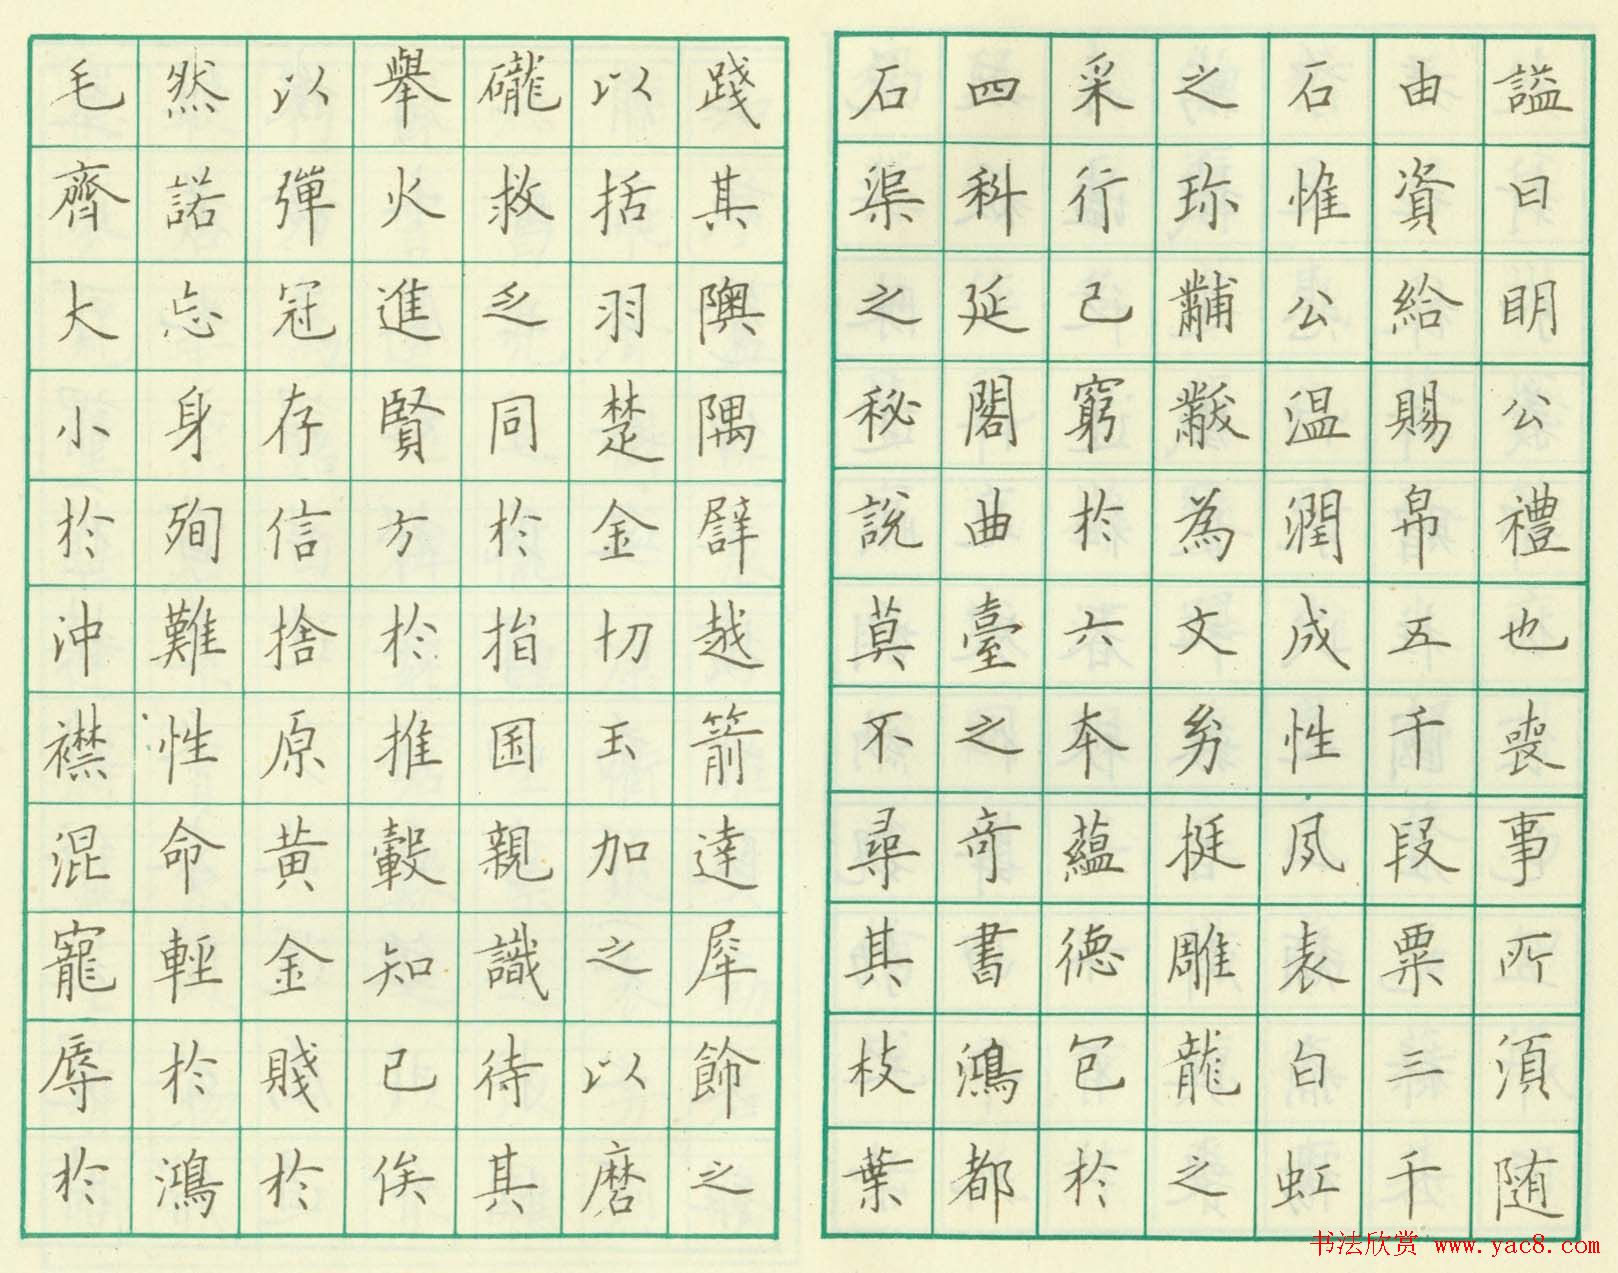 謚曰明公禮也喪事所須随
由資給賜帛五千段粟三千
石惟公温潤成性夙表白虹
之珎黼黻為文㓜挺雕龍之
采行己窮於六本蘊德包於
四科延閣曲臺之奇書鴻都
石渠之秘說莫不尋其枝葉
踐其隩隅譬越箭達犀飾之
以括羽楚金切玉加之以磨
礲救乏同於指囷親識待其
舉火進賢方於推轂知己俟
以彈冠存信捨原黄金賤於
然諾忘身殉難性命輕於鴻
毛齊大小於沖襟混寵辱於
书法欣赏 www.yac8.com